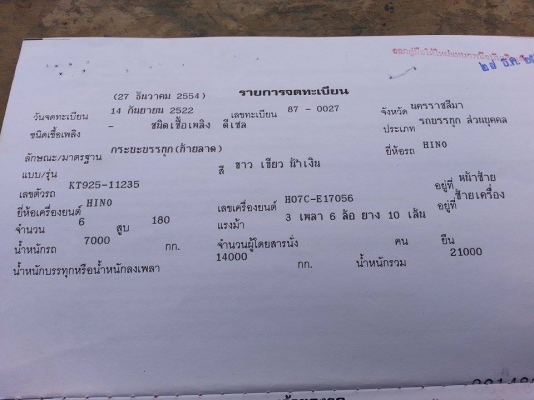 ออกคู่มือใหม่แทน
๒๗ ธ.ค. ๒๕
(27 ธันวาคม 2554) รายการจดทะเบียน
วันจดทะเบียน 14 กันยายน 2522 เลขทะเบียน 87 - 0027 จังหวัด นครราชสีมา
ชนิดเชื้อเพลิง - ชนิดเชื้อเพลิง ดีเซล ประเภท รถบรรทุก ส่วนบุคคล
ลักษณะ/มาตรฐาน กระบะบรรทุก(ท้ายลาด) ยี่ห้อรถ HINO
แบบ/รุ่น สี ขาว เขียว น้ำเงิน
เลขตัวรถ KT925-11235 อยู่ที่ หน้าซ้าย
ยี่ห้อเครื่องยนต์ HINO เลขเครื่องยนต์ H07C-E17056 อยู่ที่ ซ้ายเครื่อง
จำนวน 6 สูบ 180 แรงม้า 3 เพลา 6 ล้อ ยาง 10 เส้น
น้ำหนักรถ 7000 กก. จำนวนผู้โดยสารนั่ง คน ยืน
น้ำหนักบรรทุกหรือน้ำหนักลงเพลา 14000 กก. น้ำหนักรวม 21000